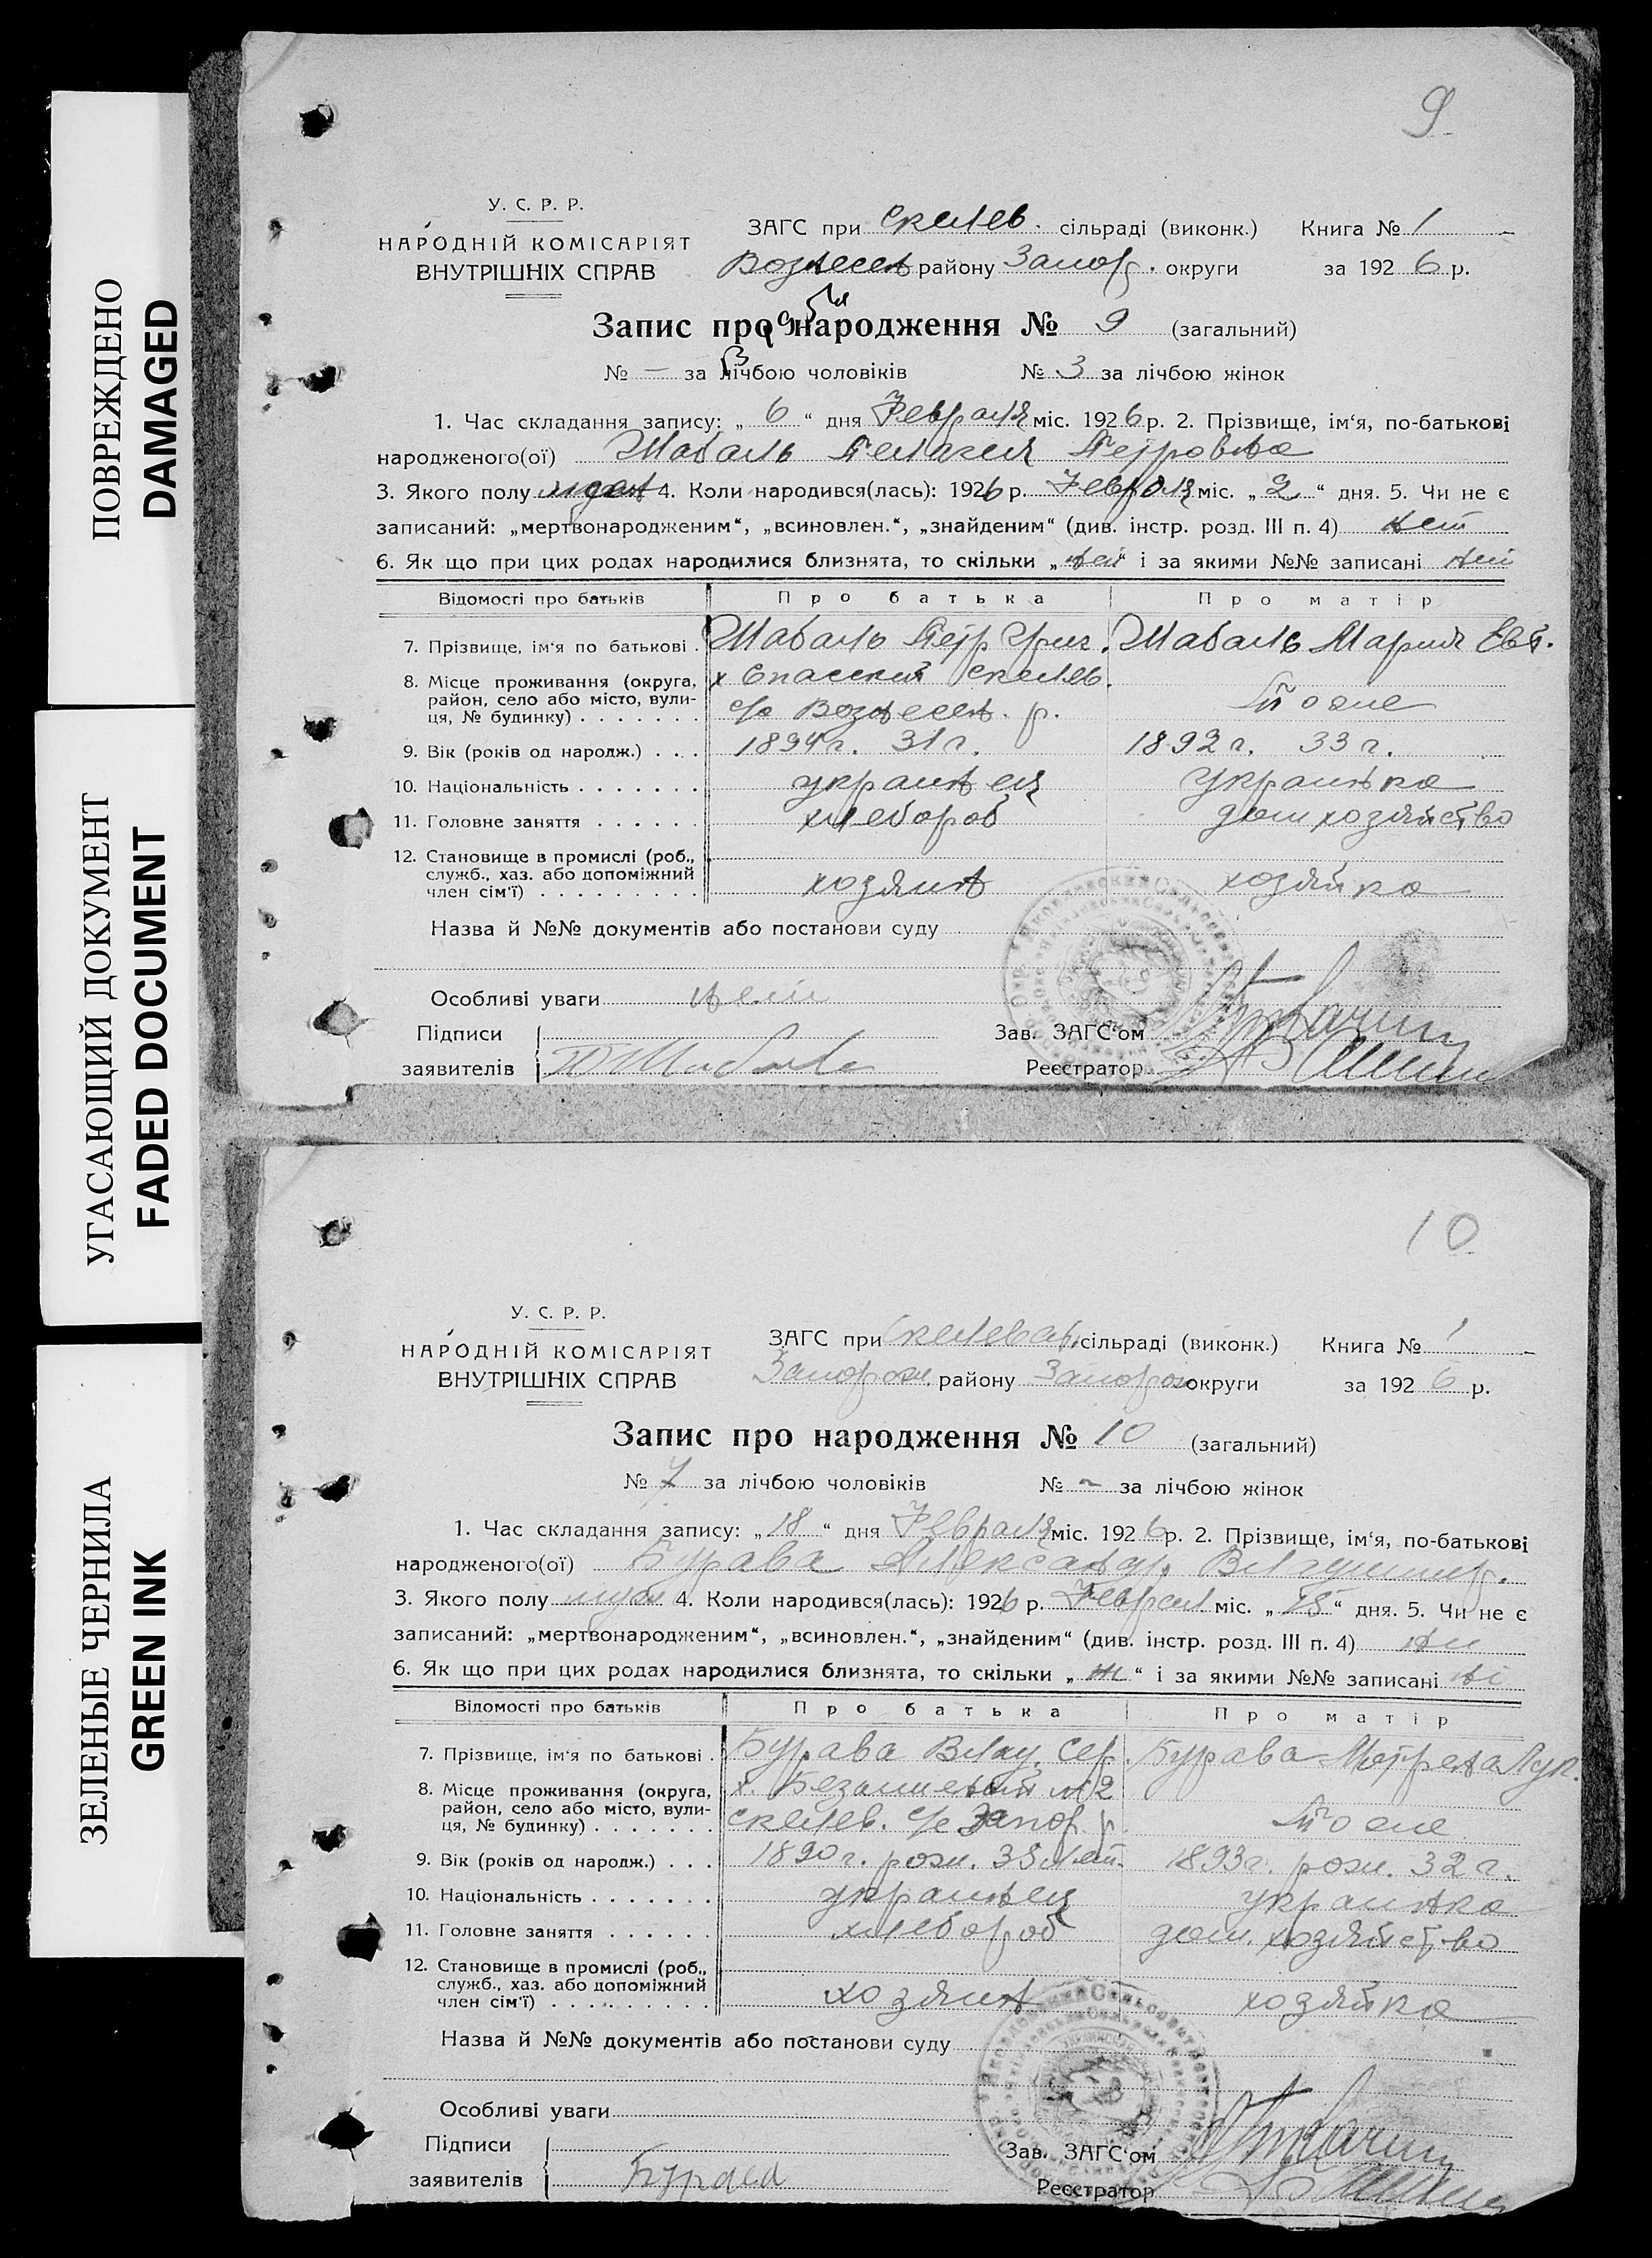 ПОВРЕЖДЕНО
DAMAGED
УГАСАЮЩИЙ ДОКУМЕНТ
FADED DOCUMENT
ЗЕЛЕНЫЕ ЧЕРНИЛА
GREEN INK
9
У. С. Р. Р.
НАРОДНІЙ КОМІСАРІЯТ
ВНУТРІШНІХ СПРАВ
ЗАГС при Скелев. сільраді (виконк.) Книга № 1
Вознесен району Запор. округи за 1926 р.
Запис про народження № 9 (загальний)
№ — за лічбою чоловіків № 3 за лічбою жінок
1. Час складання запису: „ 6 “ дня Февраля міс. 1926 р. 2. Прізвище, ім‘я, по-батькові
народженого(ої) Шабаль Пелагея Петровна
3. Якого полу 4. Коли народився(лась): 1926 р. Февраля міс. „ 2 “ дня. 5. Чи не є
записаний: „мертвонародженим“, „всиновлен.“, „знайденим“ (див. інстр. розд. III п. 4) нет
6. Як що при цих родах народилися близнята, то скільки „ нет “ і за якими №№ записані нет
Відомості про батьків Про батька Про матір
7. Прізвище, ім‘я по батькові . Шабаль Петр Григ. Шабаль Мария Евт.
8. Місце проживання (округа, х Спасский Скелев.
район, село або місто, вули- с/с Вознесен. р. То же
ця, № будинку) . . . . . . .
9. Вік (років од народж.) . . . 1894 г. 31 г. 1892 г. 33 г.
10. Національність . . . . . . . украинец украинка
11. Головне заняття . . . . . . хлебороб дом хозяйство
12. Становище в промислі (роб.,
служб., хаз. або допоміжний
член сім‘ї) . . . . . . . . . . хозяин хозяйка
Назва й №№ документів або постанови суду
Особливі уваги нет
Підписи Зав. ЗАГС‘ом
заявителів Реєстратор
10
У. С. Р. Р.
НАРОДНІЙ КОМІСАРІЯТ
ВНУТРІШНІХ СПРАВ
ЗАГС при Скелеват. сільраді (виконк.) Книга № 1
Запорож. району Запорож округи за 1926 р.
Запис про народження № 10 (загальний)
№ 7 за лічбою чоловіків № – за лічбою жінок
1. Час складання запису: „ 18 “ дня Февраля міс. 1926 р. 2. Прізвище, ім‘я, по-батькові
народженого(ої) Бурава Александр Владимир.
3. Якого полу муж 4. Коли народився(лась): 1926 р. Феврал міс. „ 15 “ дня. 5. Чи не є
записаний: „мертвонародженим“, „всиновлен.“, „знайденим“ (див. інстр. розд. III п. 4)
6. Як що при цих родах народилися близнята, то скільки „ “ і за якими №№ записані ні
Відомості про батьків Про батька Про матір
7. Прізвище, ім‘я по батькові . Бурава Влад. Сер. Бурава Мотрена Лук.
8. Місце проживання (округа, х. №2
район, село або місто, вули- Скелев. с/с Запор. р. То же
ця, № будинку) . . . . . . .
9. Вік (років од народж.) . . . 1890 г. рож. 35 лет. 1893 г. рож. 32 г.
10. Національність . . . . . . . украинец украинка
11. Головне заняття . . . . . . хлебороб дом. хозяйство
12. Становище в промислі (роб.,
служб., хаз. або допоміжний
член сім‘ї) . . . . . . . . . . хозяин хозяйка
Назва й №№ документів або постанови суду
Особливі уваги
Підписи Зав. ЗАГС‘ом
заявителів Бурава Реєстратор